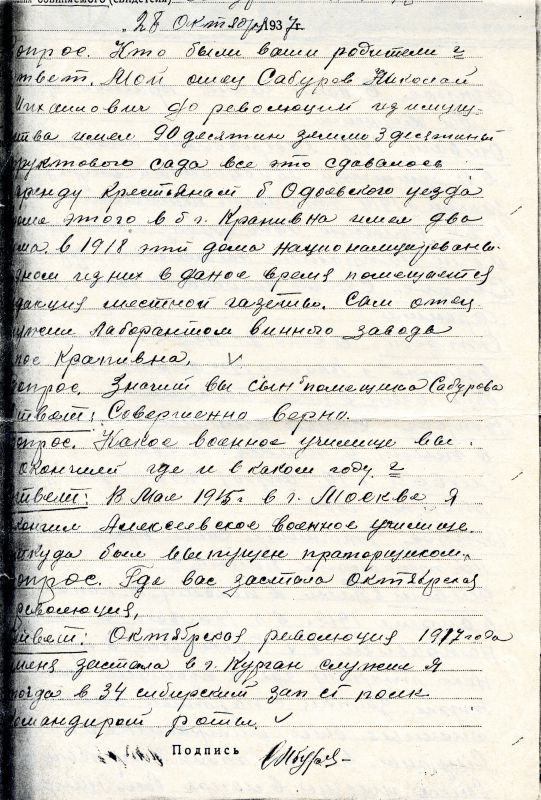 28 Октября 1937 г.
опрос. Кто были ваши родители ?
твет. Мой отец Сабуров Николай
Михайлович до революции из имущ-
тва имел 90 десятин земли 3 десятины
руктового сада все это сдавалось
аренду крестьянам б Одоевского уезда
оме этого в б г. Крапивна имел два
ма. в 1918 эти дома национализированы.
дном из них в даное время помещается
дакция местной газеты. Сам отец
ужил Лаборантом винного завода
Крапивна.
опрос. Значит вы сын помещика Сабурова
твет: Совершенно верно.
опрос. Какое военное училище вы
окончили где и в каком году ?
твет: В Мае 1915 г в г. Москве я
кончил Алексеевское военное училище.
ткуда был выпущен праторщиком.
опрос. Где вас застала Октябрская
революция,
твет: Октябрская революция 1917 года
меня застала в г. Курган служил я
тогда в 34 сибирский зап ст полк
омандиром роты.
Подпись Сабуров